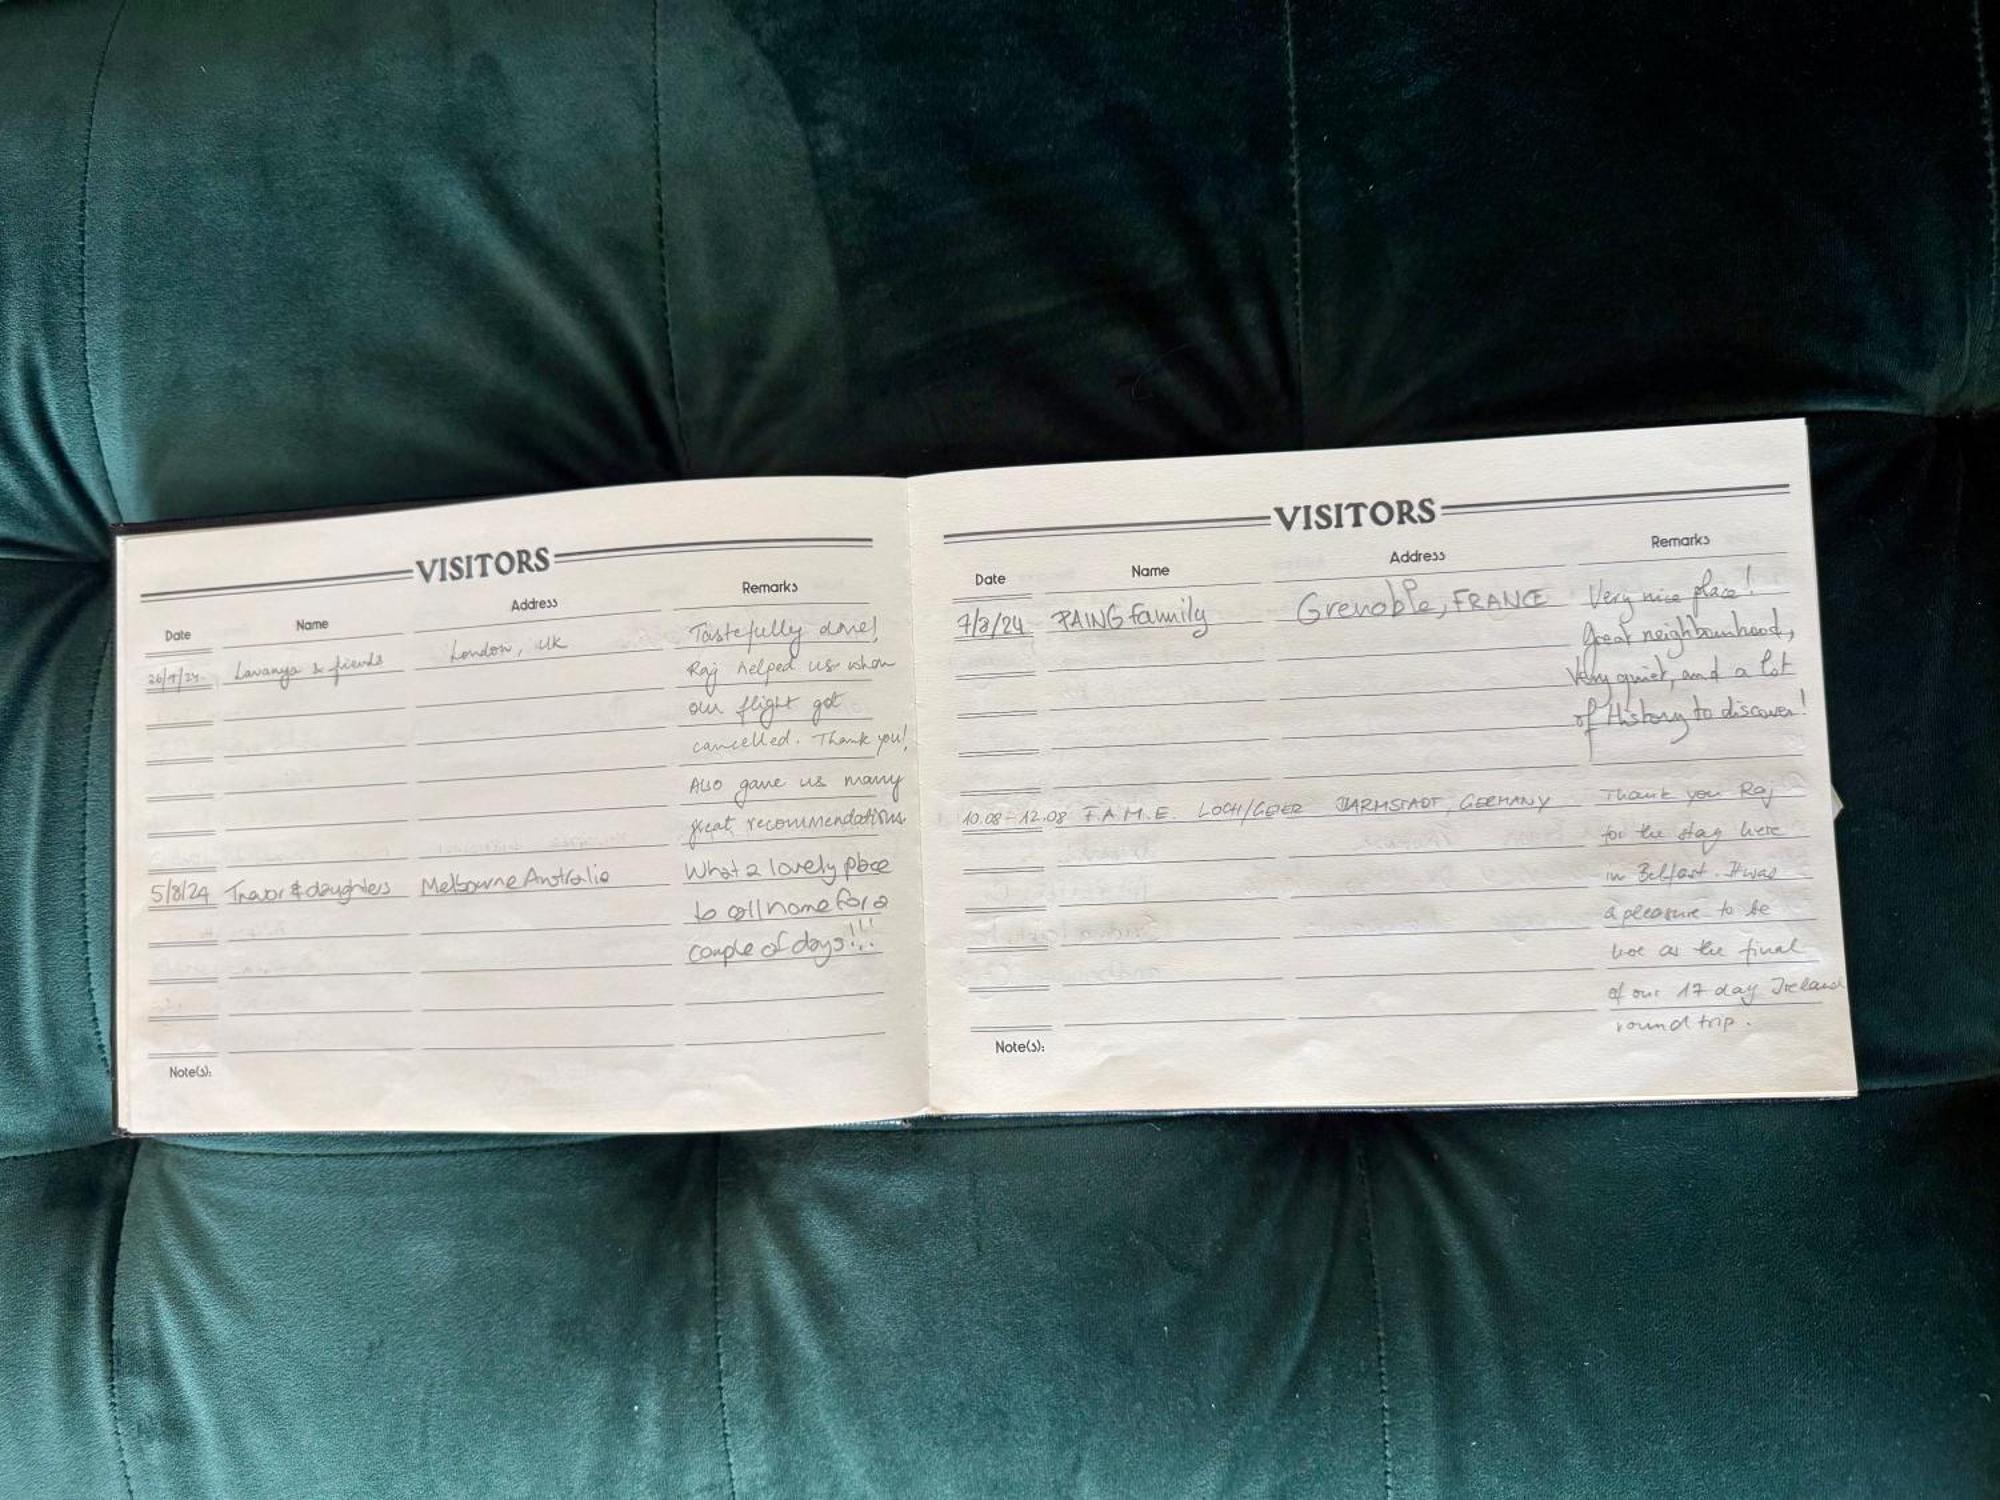 VISITORS
Date Name Address Remarks
26/7/24. Lavanya & friends London, UK Tastefully done!
Raj helped us when
our flight got
cancelled. Thank you!
Also gave us many
great recommendations.
5/8/24 Trevor & daughters Melbourne Australia What a lovely place
to call home for a
couple of days!!!
Note(s):
VISITORS
Date Name Address Remarks
7/8/24 PAING family Grenoble, FRANCE Very nice place!
Great neighbourhood,
Very quiet, and a lot
of History to discover!
10.08-12.08 F.A.M.E. LOCH/GEIER DARMSTADT, GERMANY Thank you Raj
for the stay here
in Belfast. It was
a pleasure to be
here as the final
of our 17 day Ireland
round trip.
Note(s):